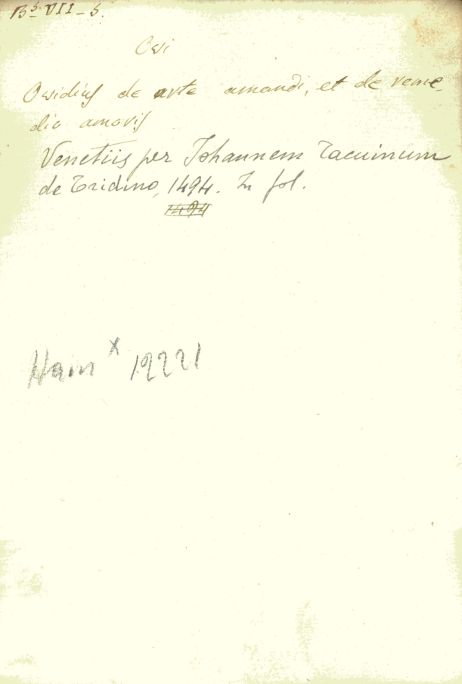 Bˢ VII_5.
Ovi
Ovidius de arte amandi, et de reme
dio amoris
Venetiis per Johannem Tacuinum
de Tridino, 1494. In fol.
1494
Hain * 12221